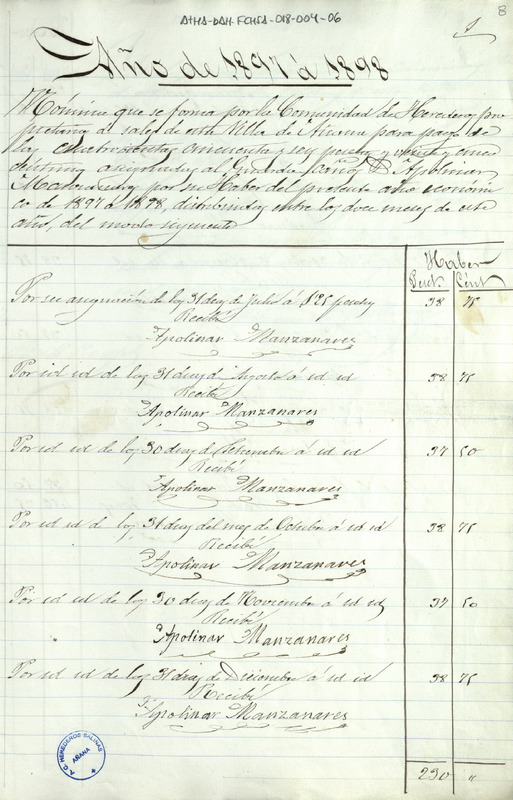 ATHA-DAH-FCHSA-018-004-06
8
1
Año de 1897 a 1898
Nómina que se forma por la Comunidad de Herederos pro
pietarios de sales de esta Villa de Añana para pago de
las cuatrocientas cincuenta y seis pesetas y veinte y cinco
céntimos asignadas al Guarda caños D. Apolinar
Manzanares por su Haber del presente año económi
co de 1897 a 1898, distribuidas entre los doce meses de este
año, del modo siguiente
Haber
Peset. Cént.
Por su asignación de los 31 dias de Julio á 1'25 pesetas 38 75
Recibí
Apolinar Manzanares
Por id id de los 31 dias de Agosto á id id 38 75
Recibí
Apolinar Manzanares
Por id id de los 30 dias de Setiembre á id id 37 50
Recibí
Apolinar Manzanares
Por id id de los 31 dias del mes de Octubre á id id 38 75
Recibí
Apolinar Manzanares
Por id id de los 30 dias de Noviembre á id id 37 50
Recibí
Apolinar Manzanares
Por id id de los 31 dias de Diciembre á id id 38 75
Recibí
Apolinar Manzanares
230 "
HEREDEROS SALINAS
AÑANA